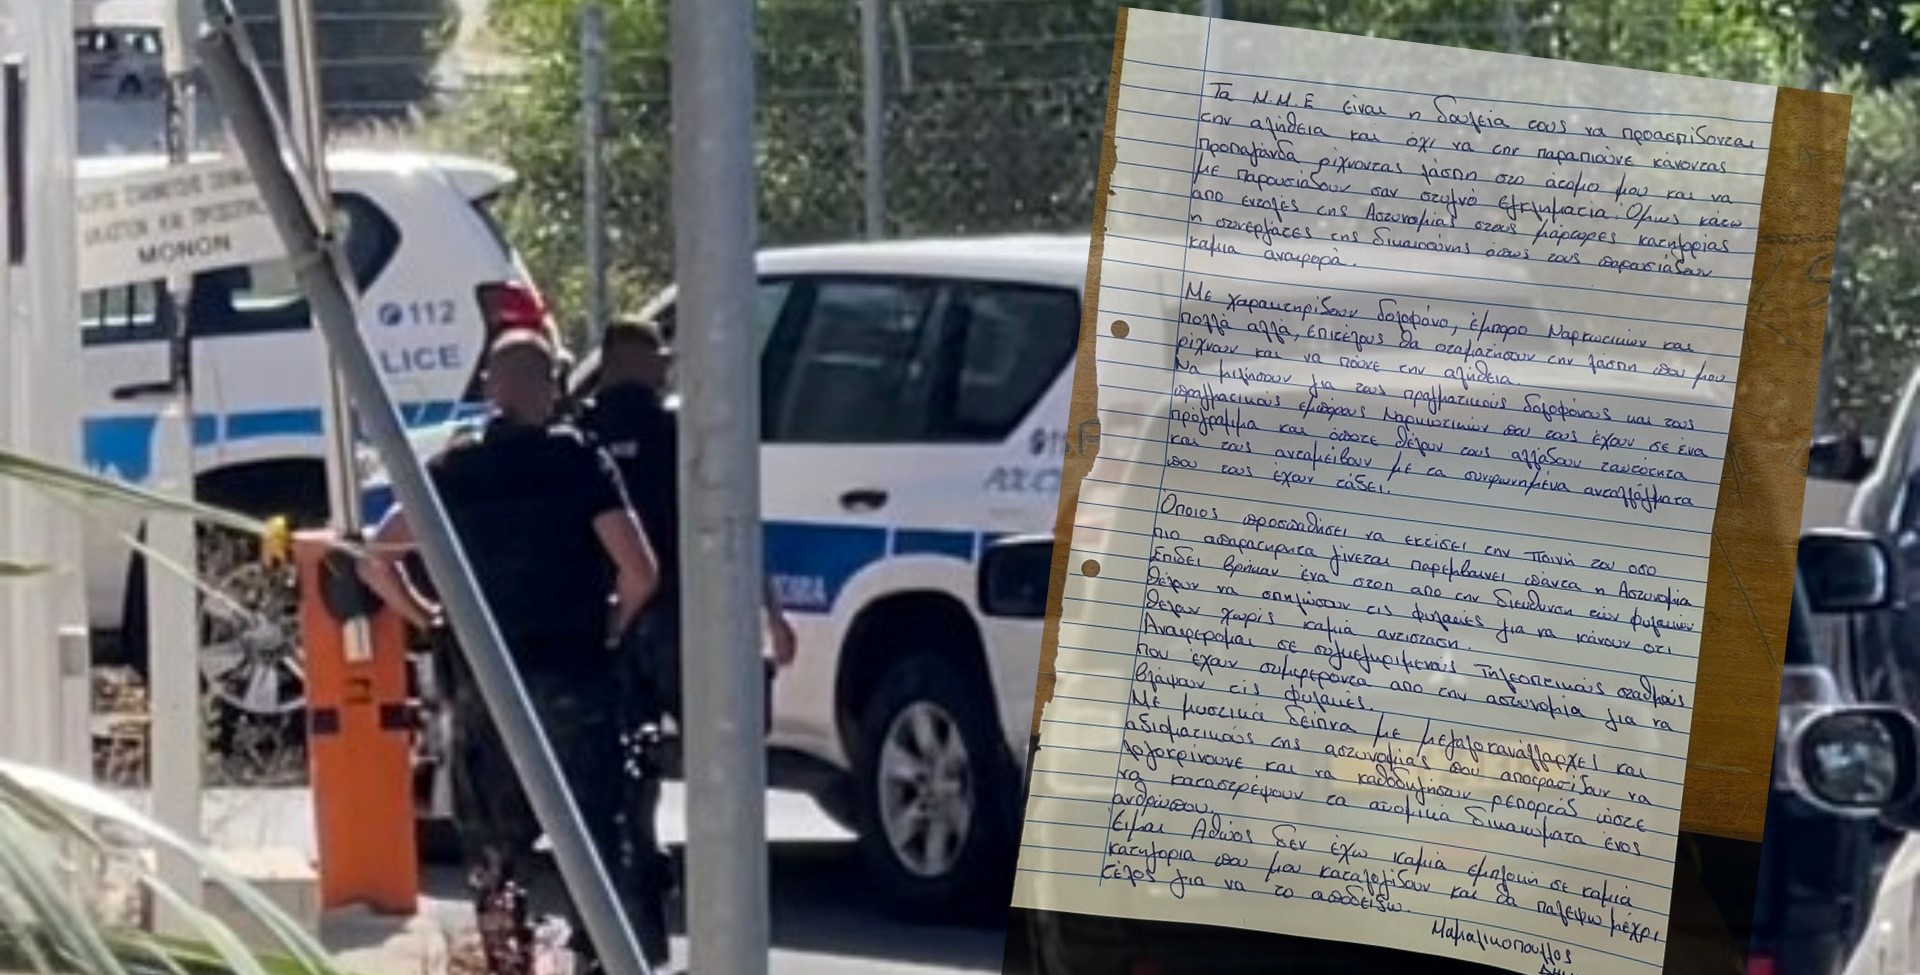 ΜΟΝΟΝ
112
LICE
POLICE
Τα Μ.Μ.Ε είναι η δουλεία τους να προασπίδονται
την αλήθεια και όχι να την παραπιούνε κάνοντας
προπαγάνδα ρίχνοντας λάσπη στο άτομο μου και να
με παρουσιάδουν σαν στυγνό εγκληματία. Όμως κάτω
από εντολές της Αστυνομίας στους μάρτυρες κατηγορίας
η συνεργάτες της δικαιοσύνης όπως τους παρουσιάδουν
καμια αναφορά.
Με χαρακτηρίδουν δολοφόνο, έμπορο Ναρκωτικών και
πολλά αλλά, επιτέλους θα σταματήσουν την λάσπη που μου
ρίχνουν και να πούνε την αλήθεια.
Να μιλήσουν για τους πραγματικούς δολοφόνους και τους
πραγματικούς εμπόρους Ναρκωτικών που τους έχουν σε ένα
πρόγραμμα και όποτε θέλουν τους αλλάδουν ταυτότητα
και τους ανταμείβουν με τα συμφωνημένα ανταλλάγματα
που τους έχουν τάδει.
Οποιος προσπαθήσει να εκτίσει την ποινή του οσο
πιο απαρατηρητα γίνεται παρεμβαινει πάντα η Αστυνομια
Επιδει βρήκαν ένα στοπ απο την διευθυνση των φυλακων
θέλουν να σπηλώσουν εις φυλακές για να κάνουν οτι
θελουν χωρίς καμιά αντισταση.
Αναφερομαι σε συγκεκριμενούς Τηλεοπτικούς σταθμούς
που έχουν συμφεροντα απο την αστυνομια για να
βλάψουν εις φυλακές.
Με μυστικά δείπνα με μεγαλοκανάλλαρχες και
αδιοματικούς της αστυνομίας που αποφασίδουν να
λογοκρίνουνε και να καθοδηγήσουν ρεπορτές ώστε
να καταστρέψουν τα ατομικά δικαιωματα ένος
ανθρώπου.
Είμαι Αθώος δεν έχω καμιά εμπλοκη σε καμιά
κατηγορια που μου καταλογίδουν και θα παλεψω μέχρι
τέλος για να το αποδείξω.
Μαμαλικοπουλλος